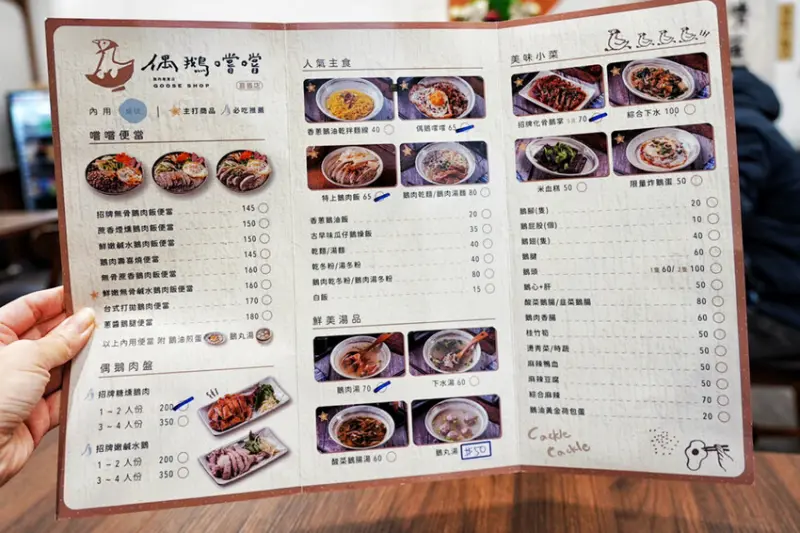 偶鵝嚐嚐
GOOSE SHOP
內用
主打商品
必吃推薦
嚐嚐便當
招牌無骨鵝肉飯便當 145
蔗香煙燻鵝肉飯便當 150
鮮嫩鹹水鵝肉飯便當 150
鵝肉壽喜燒便當 145
無骨蔗香鵝肉飯便當 160
鮮嫩無骨鹹水鵝飯便當 160
台式打拋鵝肉便當 170
蔥醬鵝腿便當 180
以上內用便當 附 鵝油煎蛋 鵝丸湯
偶鵝肉盤
招牌糖燻鵝肉
1 ~ 2 人份 200
3 ~ 4 人份 350
招牌嫩鹹水鵝
1 ~ 2 人份 200
3 ~ 4 人份 350
人氣主食
香蔥鵝油乾拌麵線 40
偶鵝嚐嚐 65
特上鵝肉飯 65
鵝肉乾麵/鵝肉湯麵 80
香蔥鵝油飯 20
古早味瓜仔鵝燥飯 35
乾麵/湯麵 40
乾冬粉/湯冬粉 40
鵝肉乾冬粉/鵝肉湯冬粉 80
白飯 15
鮮美湯品
鵝肉湯 70
下水湯 60
酸菜鵝腸湯 60
鵝丸湯 $50
美味小菜
招牌化骨鵝掌 70
綜合下水 100
米血糕 50
限量炸鵝蛋 50
鵝腳(隻) 20
鵝屁股(個) 10
鵝翅(隻) 40
鵝腱 60
鵝頭 60/ 100
鵝心+肝 50
酸菜鵝腸/韭菜鵝腸 80
鵝肉香腸 60
桂竹筍 50
燙青菜/時蔬 50
麻辣鴨血 50
麻辣豆腐 50
綜合麻辣 70
鵝油黃金荷包蛋 20
Cackle
Cackle